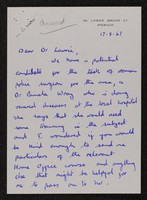 17-8-61
Dear Dr Lewis,
We have a potential
candidate for the task of woman
police surgeon for our area, a
Dr Pamela Wray who is doing
several sessions at the local hospital
She says that she would need
some training in the subject
and I wondered if you would
be kind enough to send me
particulars of the relevant
Home Office course and anything
else that might be helpful for
me to pass on to her.